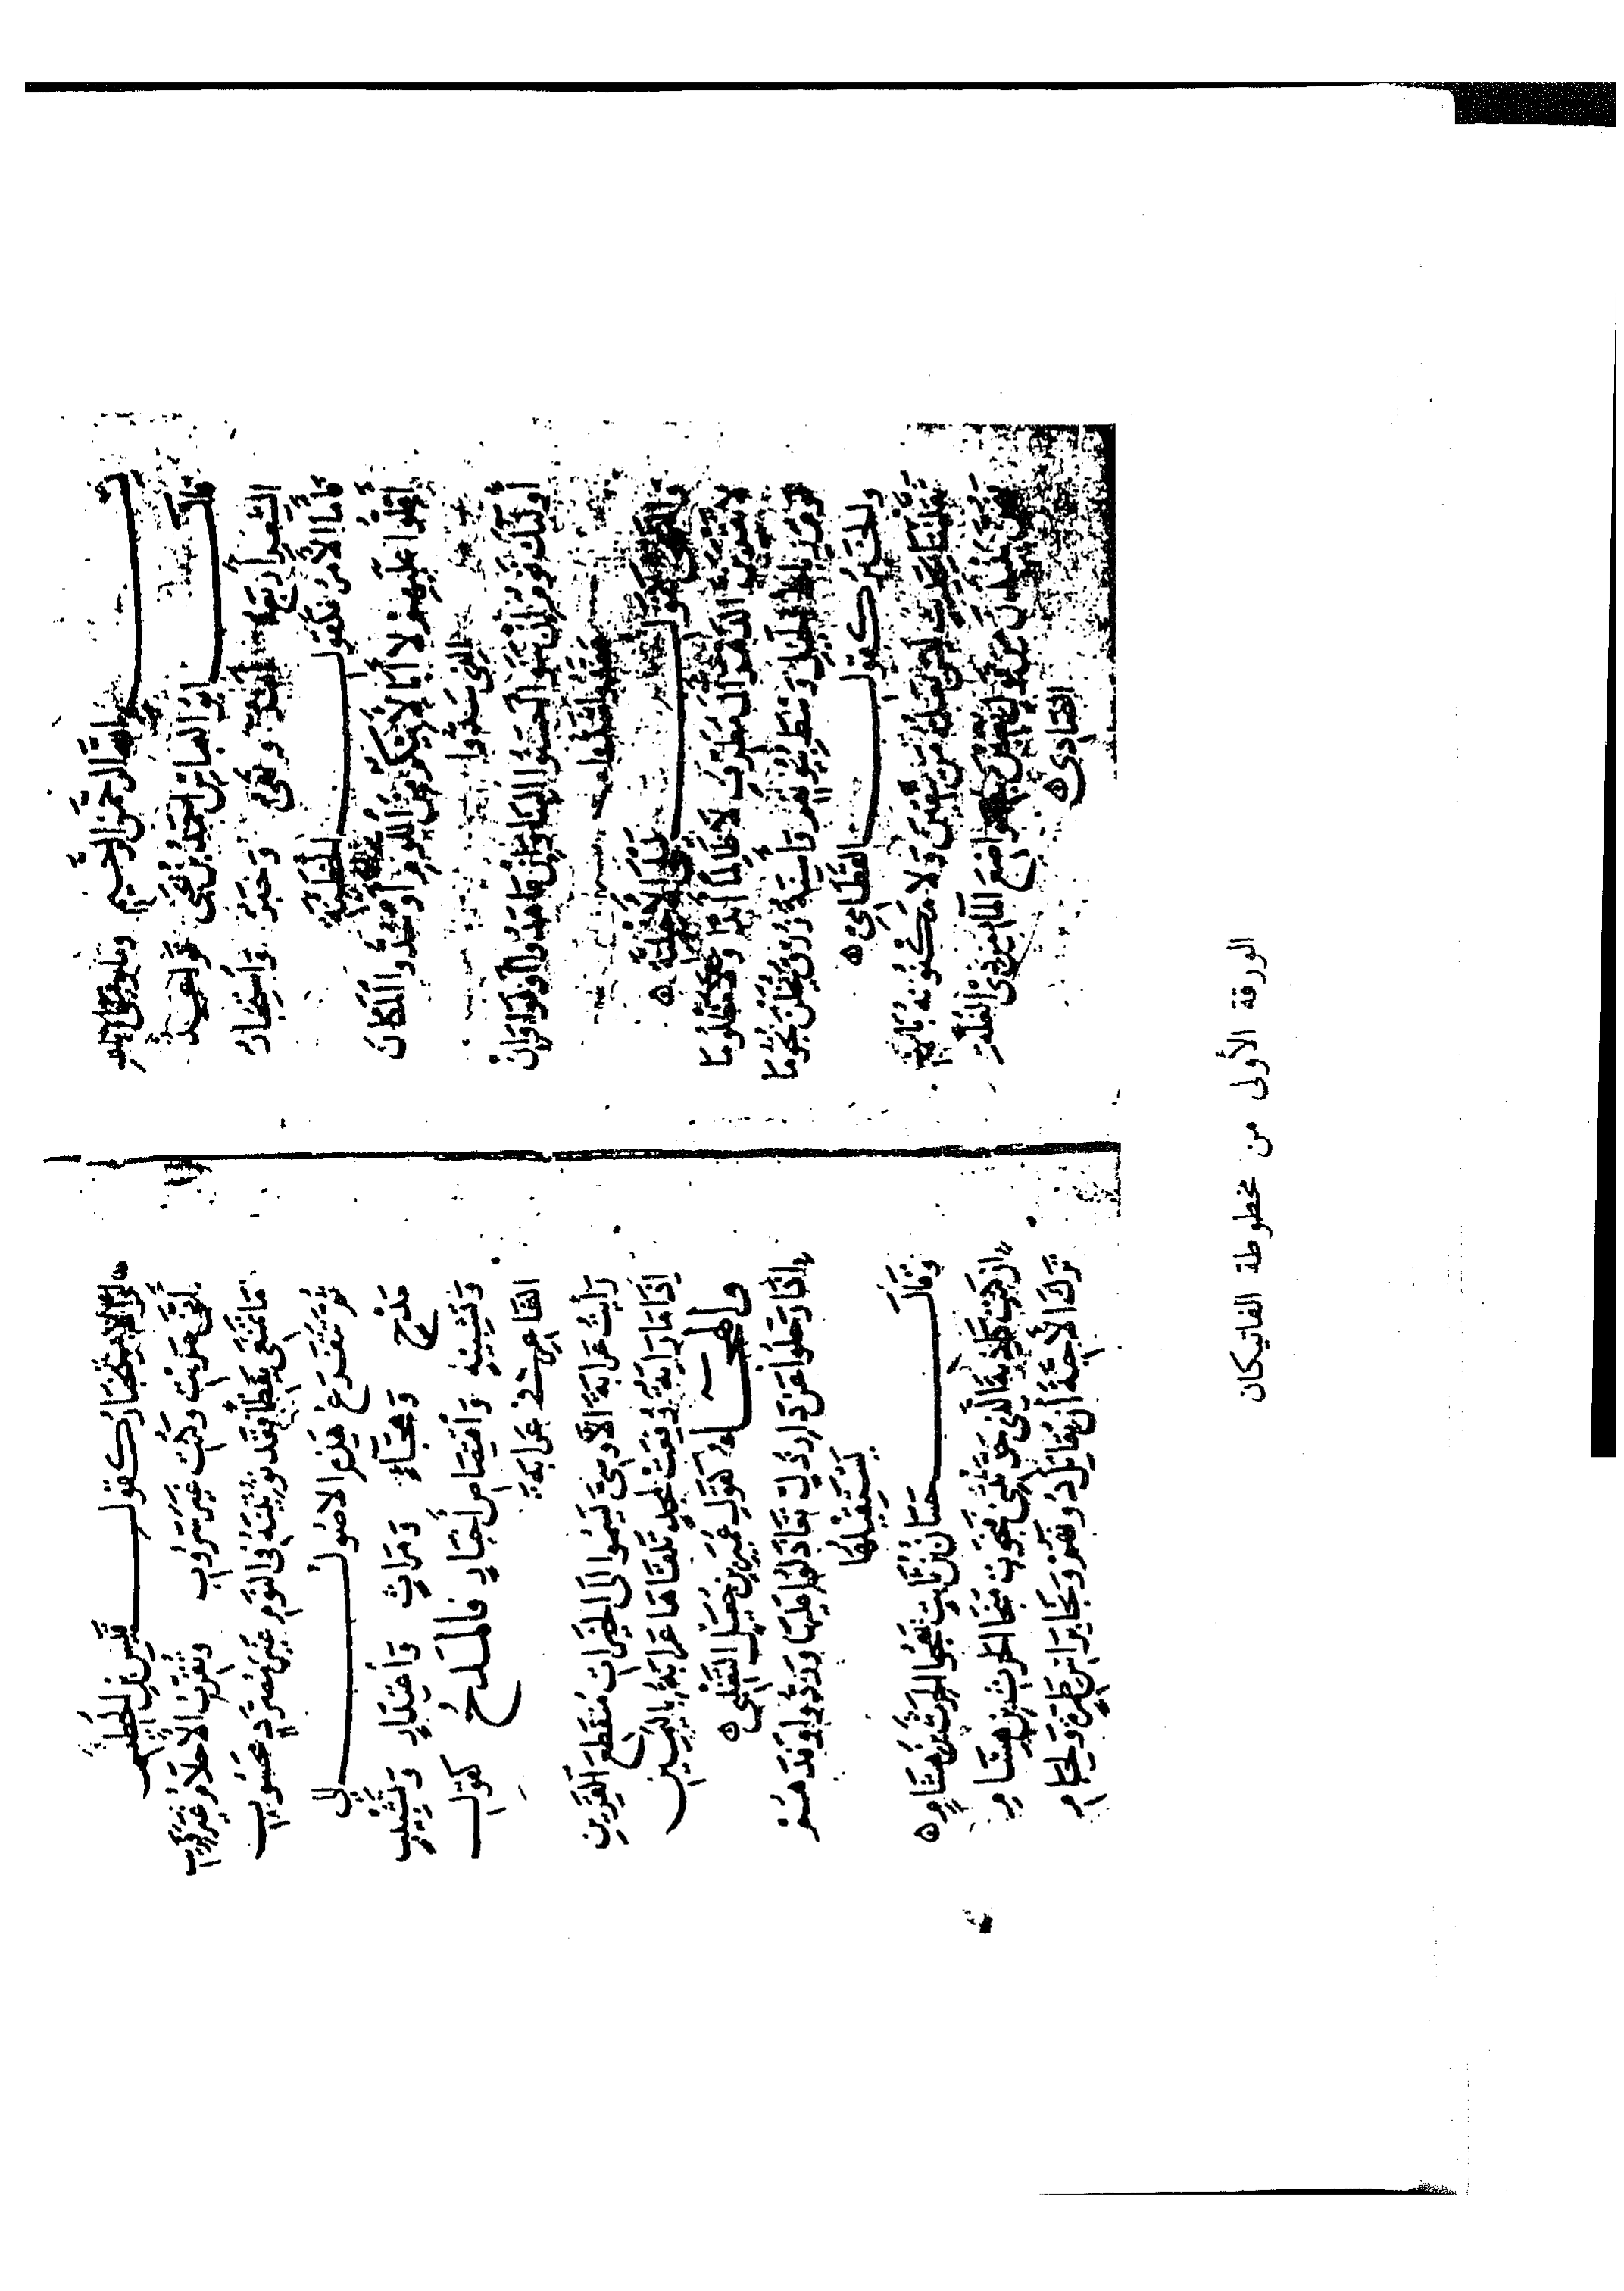 بسم الله الرحمن الرحيم وما توفيقي الا بالله
قال ابو العباس احمد بن يحيى قواعد
الشعر أربع أمر ونهي وخبر واستخبار
فأما الأمر فكقول الحطيئة
أقلوا عليهم لا أبا لأبيكم من اللوم أو سدوا المكان
الذي سدوا
أولئك قوم إن بنوا أحسنوا البنا وإن عاهدوا أوفوا وإن
عقدوا شدوا
والنهي كقول ليلى الأخيلية ه
لا تقربن الدهر آل مطرف لا ظالما أبدا ولا مظلوما
قوم رباط الخيل وسط بيوتهم وأسنة زرق يخلن نجوما
والخبر كقول القطامي ه
يقتلننا بحديث ليس يعلمه من يتقين ولا مكنونه بادي
فهن ينبذن من قول يصبن به مواقع الماء من ذي الغلة
الصادي ه
والاستخبار كقول قيس بن الخطيم
أنى سربت وكنت غير سروب وتقرب الأحلام غير قريب
ما تمنعي يقظا فقد تؤتينه في النوم غير مصرد محسوب
ثم تتفرع هذه الاصول الى
مدح وهجاء ومراث واعتذار وتشبيب
وتشبيه واقتصاص أخبار فالمدح كقول
الشماخ في عرابة
رأيت عرابة الأوسي يسمو إلى الخيرات منقطع القرين
إذا ما راية رفعت لمجد تلقاها عرابة باليمين
والهجاء كقول عمير بن جعيل التغلبي ه
إذا رحلوا عن دار ذل تعاذلوا عليها وردوا وفدهم
يستقيلها
وقال حسان بن ثابت يهجو الحرث بن هشام ه
ان كنت كاذبة الذي حدثتني فنجوت منجا الحرث بن هشام
ترك الأحبة أن يقاتل دونهم ونجا برأس طمرة ولجام
الورقة الأولى من مخطوطة الفاتيكان